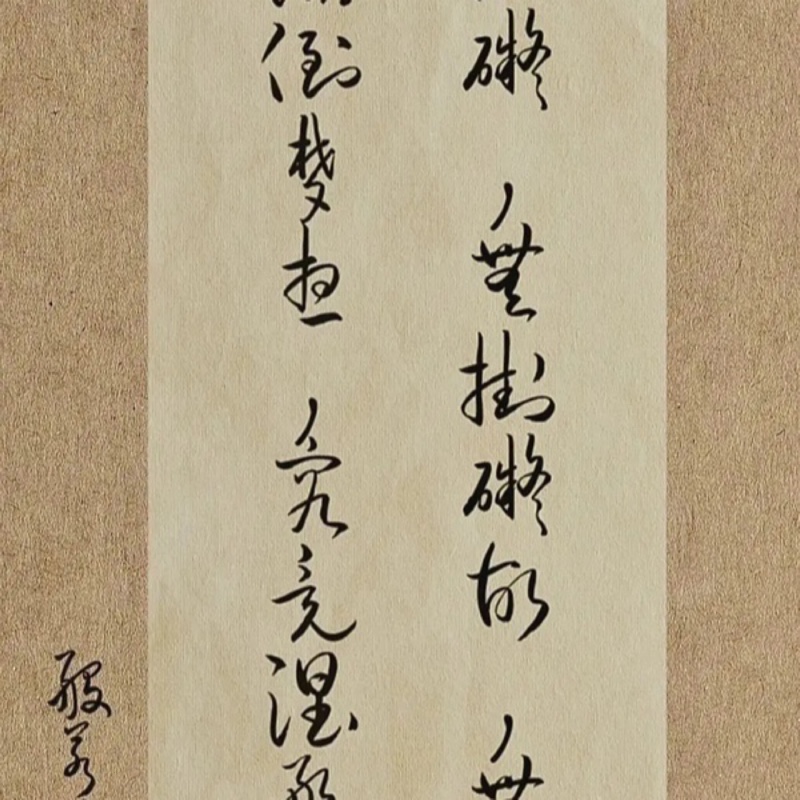 礙 無掛礙故 無
倒夢想 究竟涅槃
般若